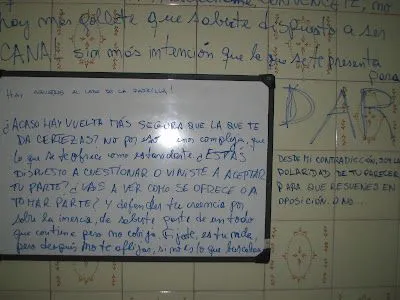 hay más gollete que saberte dispuesto a ser
CANA, sin más intención que la que se te presenta
para
DAR
HAY AGUJEROS AL LADO DE LA
¿ACASO HAY VUELTA MÁS SEGURA QUE LA QUE TE
DA CERTEZAS? No por eso menos compleja, que
lo que se te ofrece como extraordinante. ¿ESTÁS
DISPUESTO A CUESTIONAR O VINISTE A ACEPTAR
TU PARTE? ¿VAS A VER COMO SE OFRECE O A
TOMAR PARTE? Y defender tu creencia por
sobre la inercia, de saberte parte de un todo
que continua pero no obliga. Fijate, es tu rueda,
pero después no te aflijas, si no es lo que buscabas.
DESDE MI CONTRADICCIÓN, SOY LA
POLARIDAD DE TU PARECER
PARA QUE RESUENES EN
OPOSICIÓN. O NO...